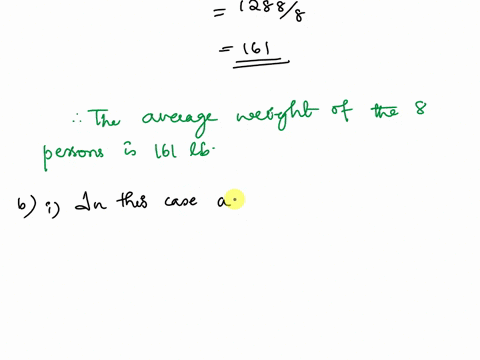 = 1288/8
= 161
∴ The average weight of the 8
persons is 161 lb.
b) i) In this case a